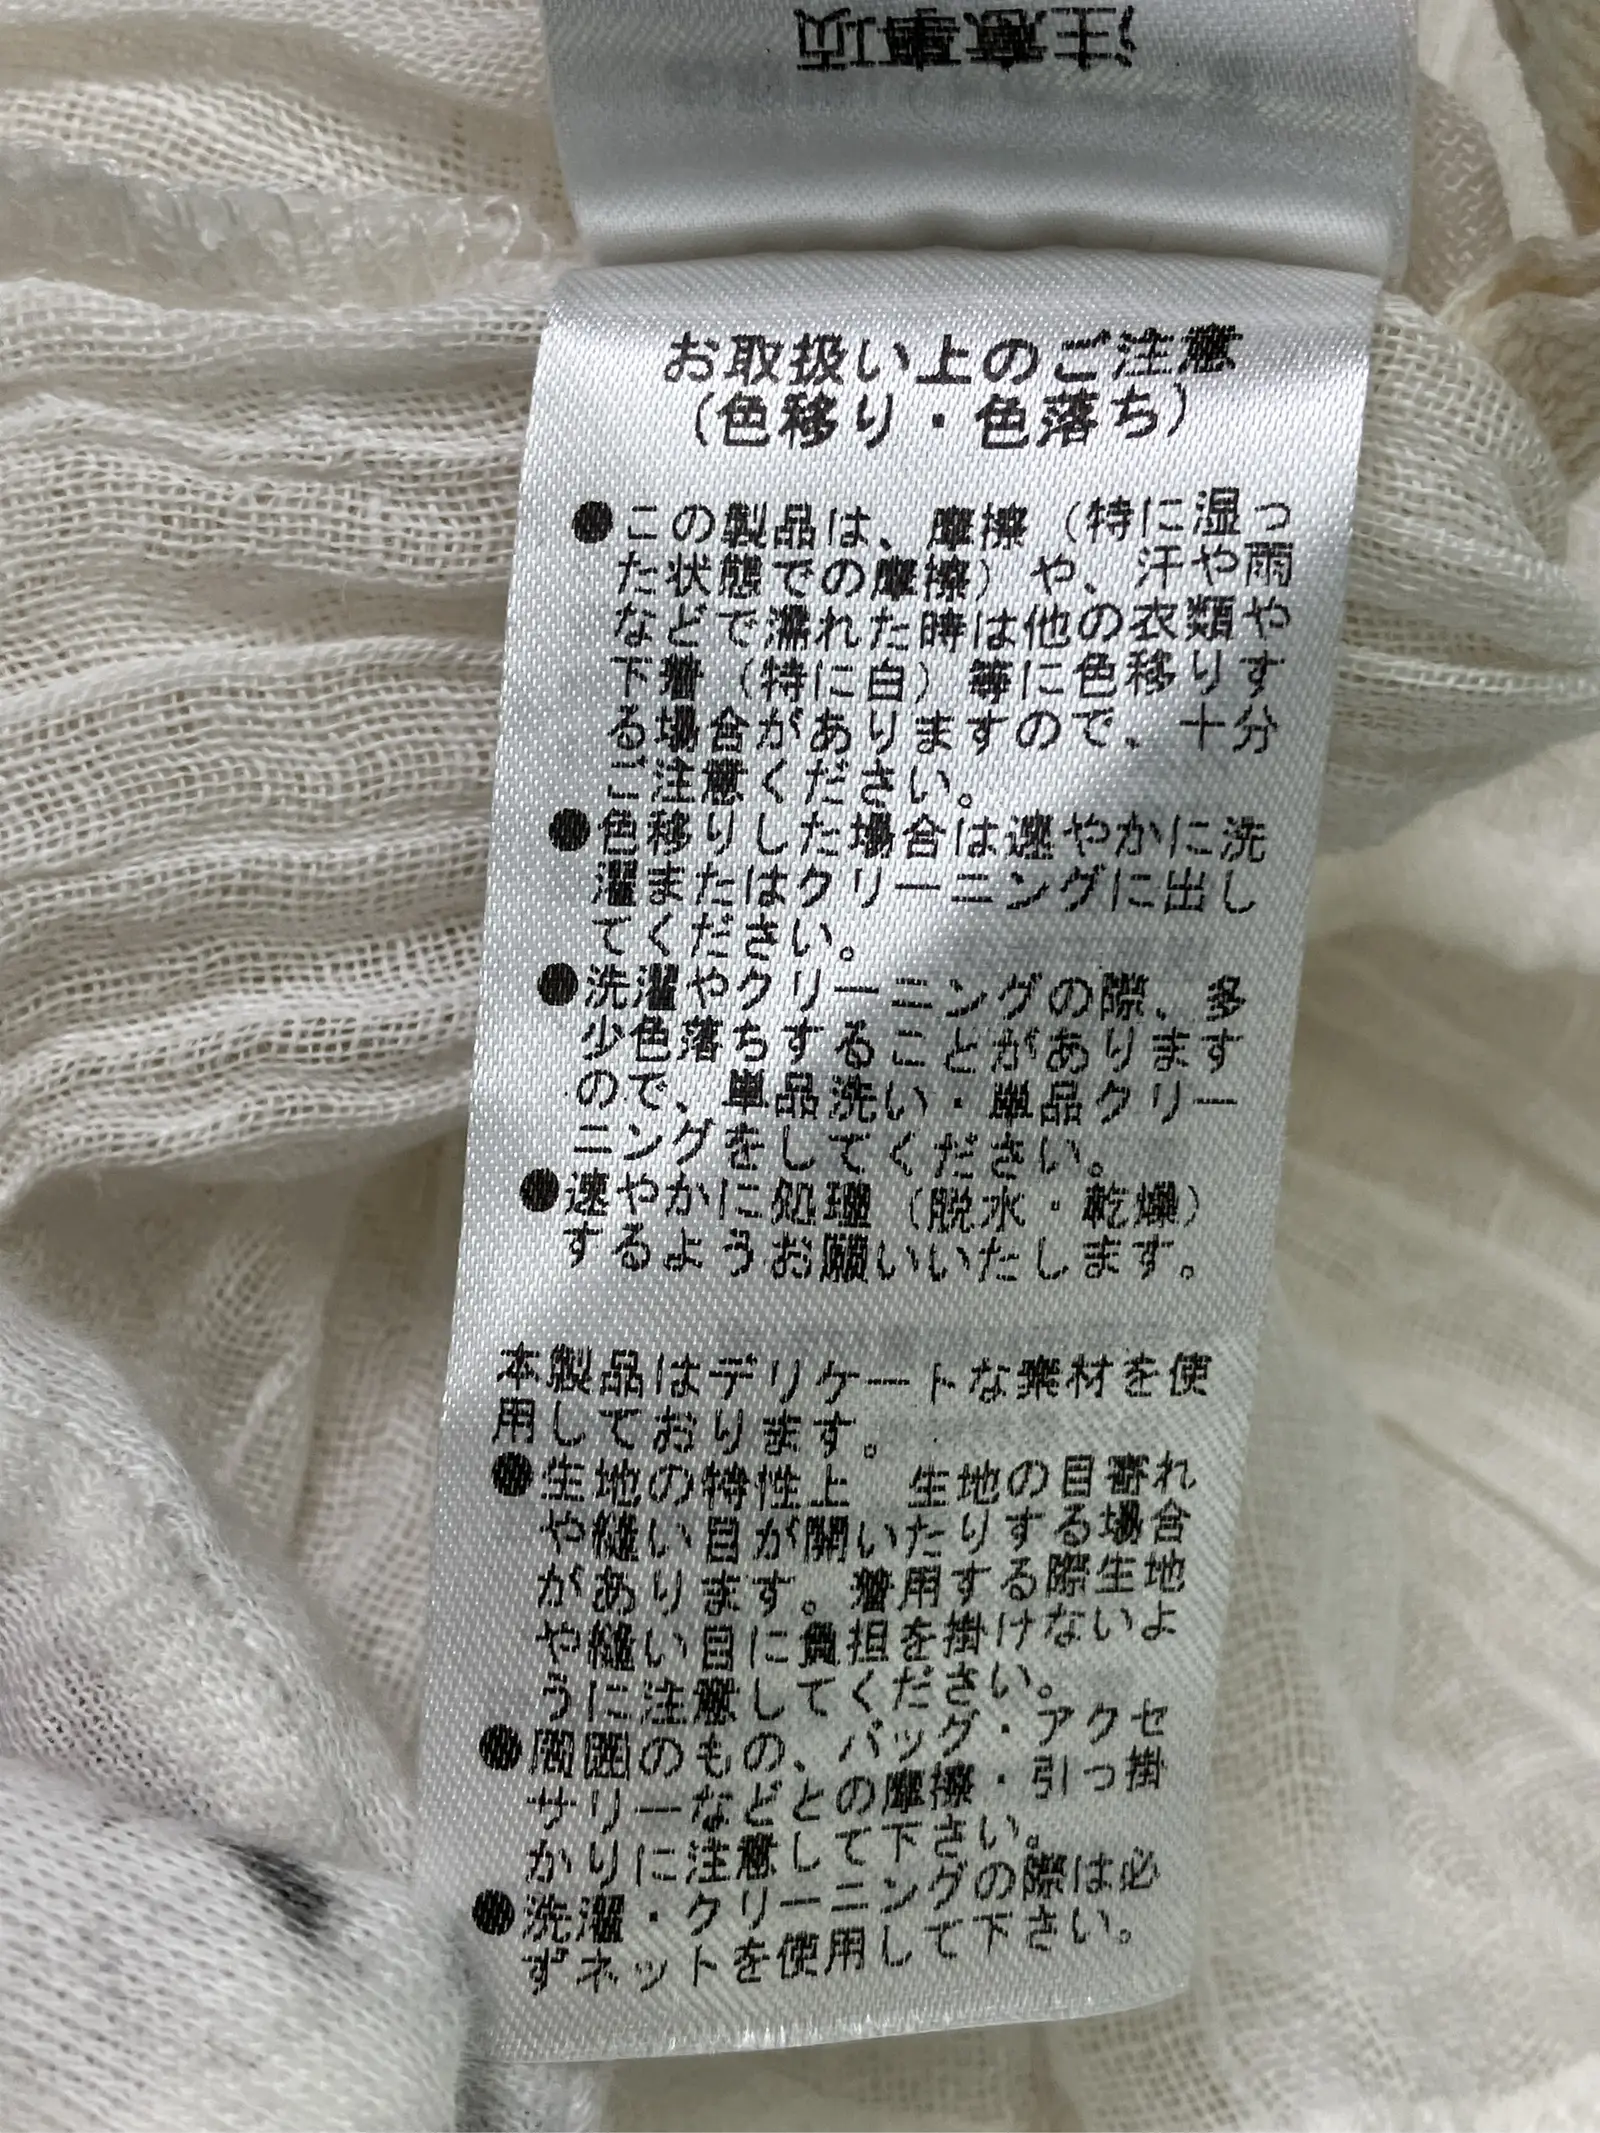 注意事項
お取扱い上のご注意
(色移り・色落ち)
●この製品は、摩擦(特に湿っ
た状態での摩擦)や、汗や雨
などで濡れた時は他の衣類や
下着(特に白)等に色移りす
る場合がありますので、十分
ご注意ください。
●色移りした場合は速やかに洗
濯またはクリーニングに出し
てください。
●洗濯やクリーニングの際、多
少色落ちすることがあります
ので、単品洗い・単品クリー
ニングをしてください。
●速やかに処理(脱水・乾燥)
するようお願いいたします。
本製品はデリケートな素材を使
用しております。
●生地の特性上 生地の目寄れ
や縫い目が開いたりする場合
があります。着用する際生地
や縫い目に負担を掛けないよ
うに注意してください。
●周囲のもの、バッグ・アクセ
サリーなどとの摩擦・引っ掛
かりに注意して下さい。
●洗濯・クリーニングの際は必
ずネットを使用して下さい。